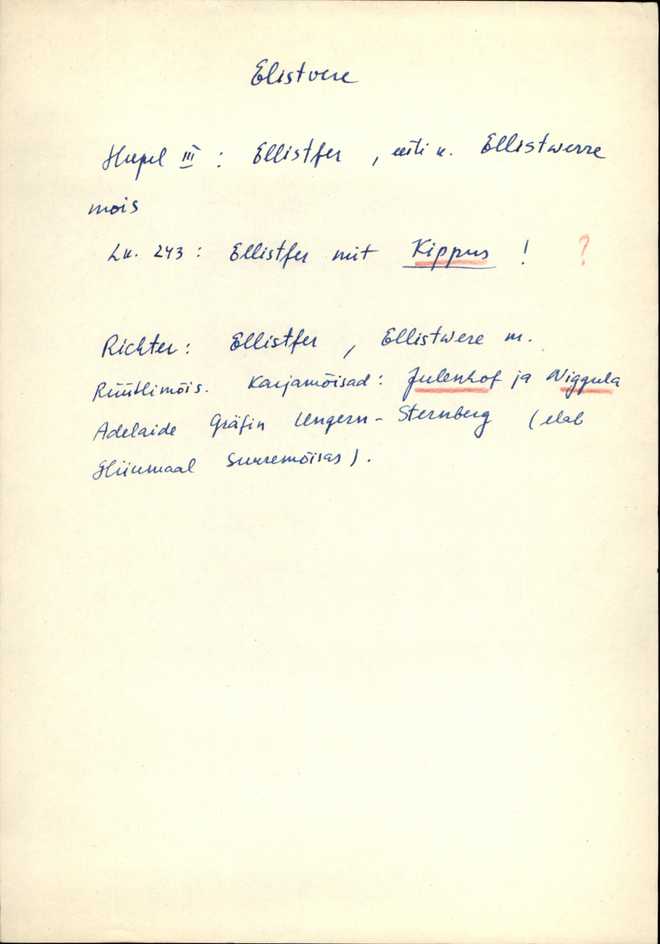 Elistvere
Hupel III : Ellistfer , eesti k. Ellistwerre
mois
Lk. 243 : Ellistfer mit Kippus ! ?
Richter : Ellistfer , Ellistwere m.
Rüütlimõis. Karjamõisad : Julenhof ja Niggula
Adelaide Gräfin Ungern - Sternberg ( elab
Hiiumaal Suuremõisas ) .